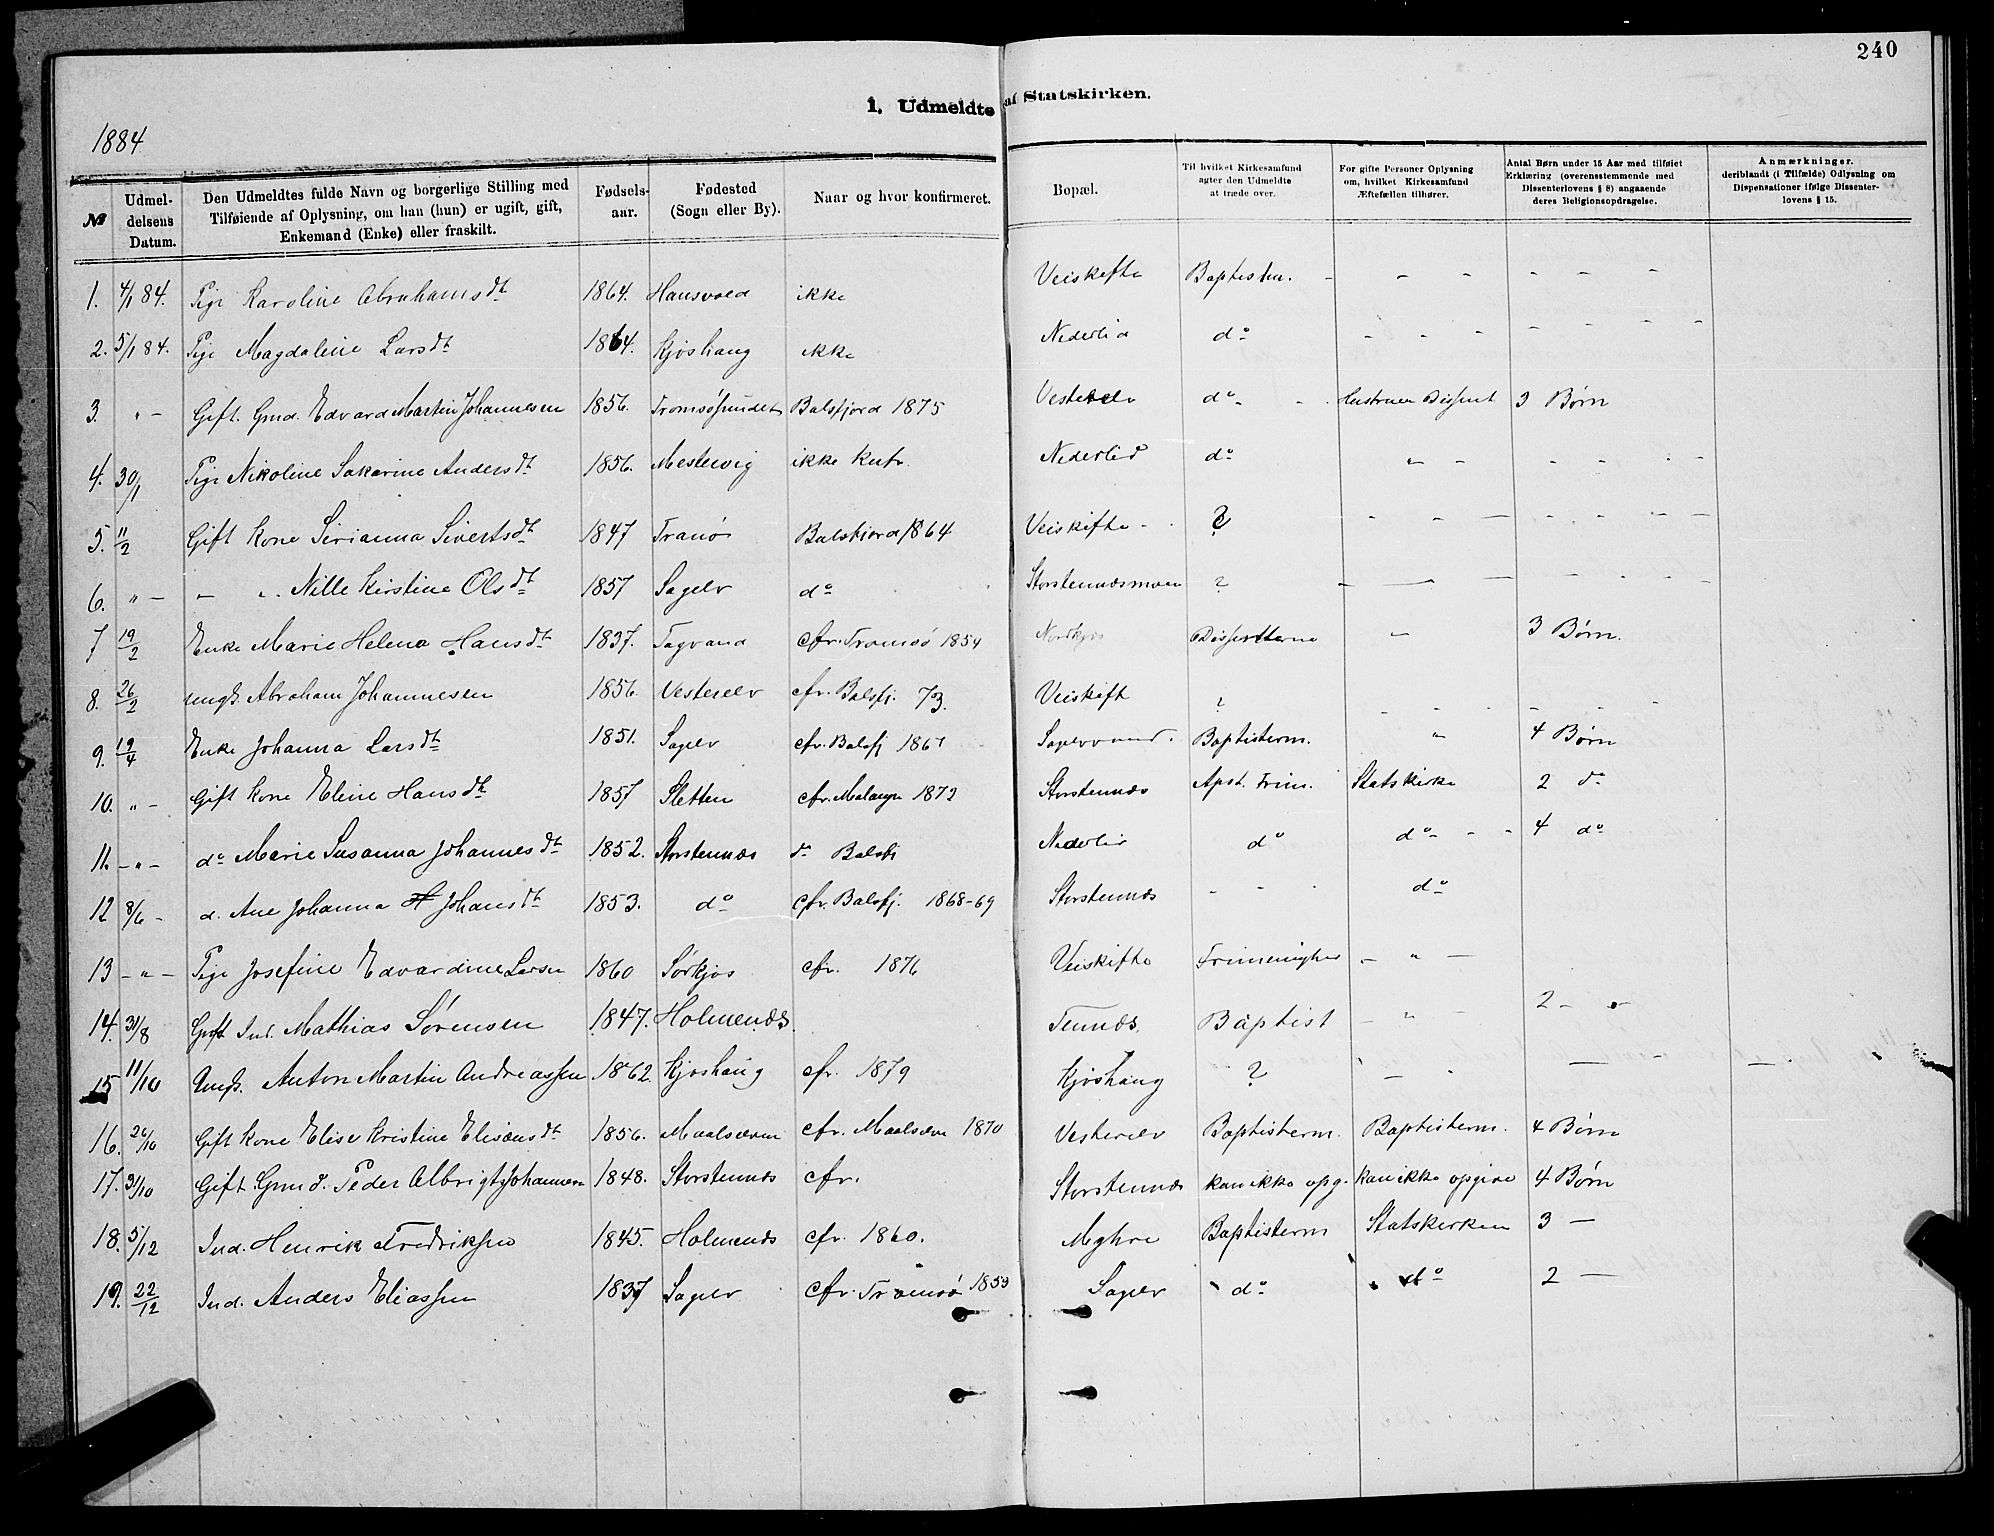 240
1. Udmeldte af Statskirken.
1884
№ | Udmeldelsens Datum. | Den Udmeldtes fulde Navn og borgerlige Stilling med Tilføiende af Oplysning, om han (hun) er ugift, gift, Enkemand (Enke) eller fraskilt. | Fødselsaar. | Fødested (Sogn eller By). | Naar og hvor konfirmeret. | Bopæl. | Til hvilket Kirkesamfund agter den Udmeldte at træde over. | For gifte Personer Oplysning om, hvilket Kirkesamfund Ægtefællen tilhører. | Antal Børn under 15 Aar med tilføiet Erklæring (overensstemmende med Dissenterlovens § 8) angaaende deres Religionsopdragelse. | Anmærkninger. deriblandt (i Tilfælde) Odlysning om Dispensationer ifølge Dissenterlovens § 15.
1. 4/1 84. Pige Karoline Abrahamsdt 1864. Hansvold ikke Veiskifte Baptistern. - - - - - -
2. 5/1 84. Pige Magdalene Larsdt 1864. Kjoshaug ikke Nederlid do - - - - - - -
3. " - Gift. Gmd. Edvard Martin Johannesen 1856. Tromsøsundet Balsfjord 1875 Vesterelv do - Hustruen Dissent 3 Børn
4. 30/1 Pige Nikoline Sakarine Andersdt 1856. Mestervig ikke Knfr. Nederlid do " - - - - -
5. 11/2 Gift Kone Sirianna Sivertsdt 1847 Tranø Balsfjord 1864 Veiskifte - ? - - - - - - - -
6. " - - " Nille Kirstine Olsdt 1857 Sagelv do Storstennæsmoen ? - - - - - - -
7 19/2 Enke Marie Helena Hansdt 1837. Tagvand cfr. Tromsø 1854 Nordkjos Dissenterne - 3 Børn.
8. 26/2 ungk. Abraham Johannesen 1856. Vesterelv cfr. Balsfj. 73. Veiskift ? - - - - - -
9. 19/4 Enke Johanna Larsdt 1851. Sagelv cfr. Balsfj 1867 Sagelvvand. Baptistern. " 4 Børn
10. " - Gift Kone Eline Hansdt 1857 Sletten cfr. Malangn 1872 Storstennæs Apst. Frim. Statskirke 2 do
11. - " - do Marie Susanna Johannesdt 1852. Storstennæs do Balsfj Nederlid do do - - - 4 do
12 8/6 - d. Ane Johanna H Johansdt 1853. do cfr. Balsfj. 1868-69 Storstennæs - - do
13 - " - Pige Josefine Edvardine Larsen 1860 Sørkjos cfr. 1876 Veiskifte Frimenighed - " -
14. 31/8 Gift Ind. Mathias Sørensen 1847. Holmenæs. Tennæs. Baptist - " - 2 -
15 11/10 Ungk. Anton Martin Andreassen 1862. Kjoshaug cfr. 1879 Kjoshaug ? - - - -
16. 26/10 Gift Kone Elise Kristine Elisæusdt 1856. Maalselven cfr. Maalselv 1870 Vesterelv Baptistern. Baptistern. 4 Børn
17. 31/10 Gift Gmd. Peder Albrigt Johannesen 1848. Storstennæs cfr. Storstennæs kan ikke opg. kan ikke opgive 4 Børn
18. 5/12 Ind. Henrik Fredriksen 1845. Holmenæs cfr. 1860. Baptistern Statskirken 3 -
19. 22/12 Ind. Anders Eliassen 1837 Sagelv cfr. Tromsø 1853 Sagelv do do 2 -